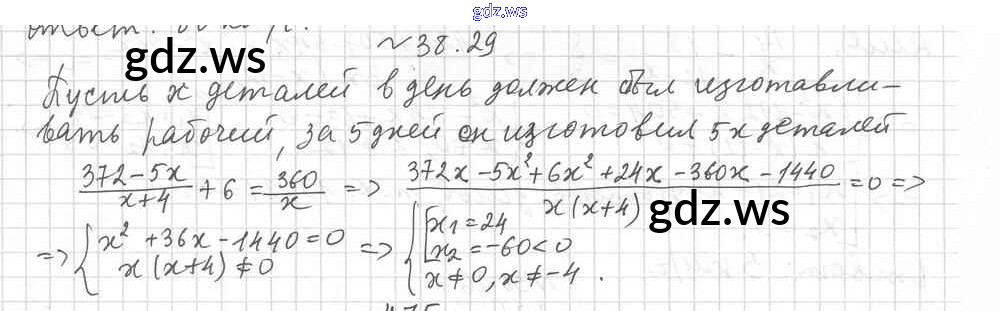 gdz.ws
ответ:
gdz.ws
~38.29
Пусть x деталей в день должен был изготавли-
вать рабочий, за 5 дней он изготовил 5x деталей
(372-5x)/(x+4) + 6 = 360/x => (372x-5x²+6x²+24x-360x-1440)/(x(x+4)) = 0 =>
gdz.ws
=> { x² +36x-1440=0 => { [ x₁=24
x(x+4)≠0 x₂=-60<0
x≠0, x≠-4.